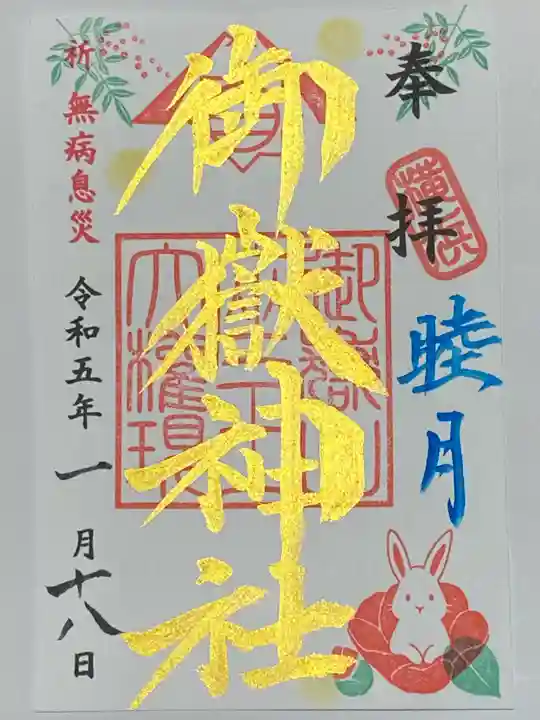 奉拝
横浜
睦月
御嶽神社
祈 無病息災
令和五年一月十八日